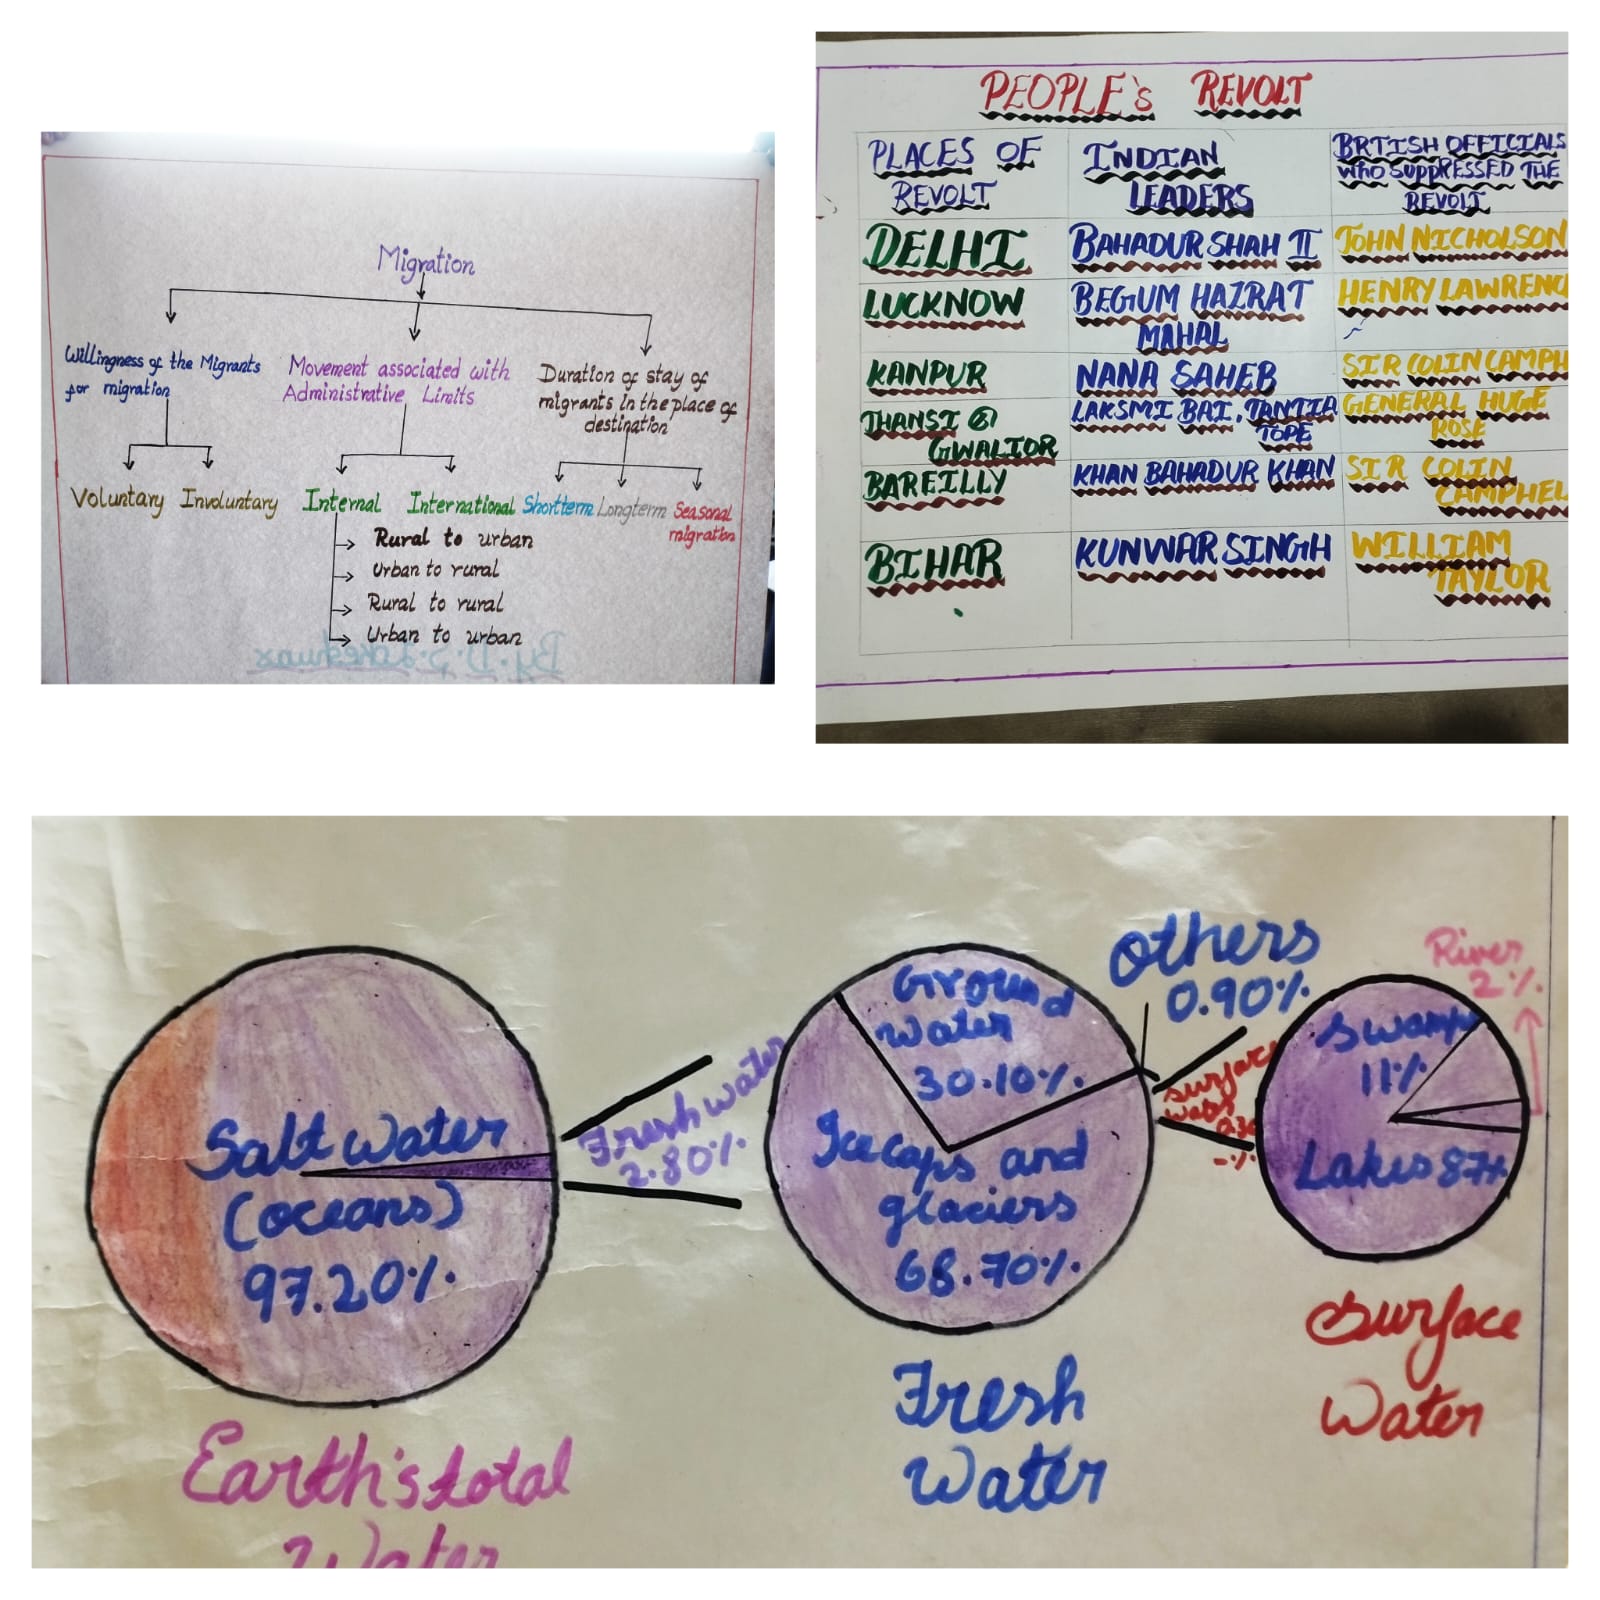 Migration
Willingness of the Migrants
for migration
Movement associated with
Administrative Limits
Duration of stay of
migrants in the place of
destination
Voluntary Involuntary
Internal International
Shortterm Longterm Seasonal
migration
Rural to urban
Urban to rural
Rural to rural
Urban to urban
By. D. S.
PEOPLE's REVOLT
PLACES OF
REVOLT
INDIAN
LEADERS
BRTISH OFFICIALS
WHO SUPPRESSED THE
REVOLT
DELHI
BAHADUR SHAH II
JOHN NICHOLSON
LUCKNOW
BEGUM HAZRAT
MAHAL
HENRY LAWRENC
KANPUR
NANA SAHEB
SIR COLIN CAMPH
JHANSI &
GWALIOR
LAKSMI BAI, TANTIA
TOPE
GENERAL HUGE
ROSE
BAREILLY
KHAN BAHADUR KHAN
SIR COLIN
CAMPHEL
BIHAR
KUNWAR SINGH
WILLIAM
TAYLOR
Salt water
(oceans)
97.20%
Fresh water
2.80%
Earth's total
Water
Ground
water
30.10%
Ice caps and
glaciers
68.70%
Others
0.90%
Fresh
Water
Surface
water
River
2%
Swamps
11%
Lakes 87%
Surface
Water